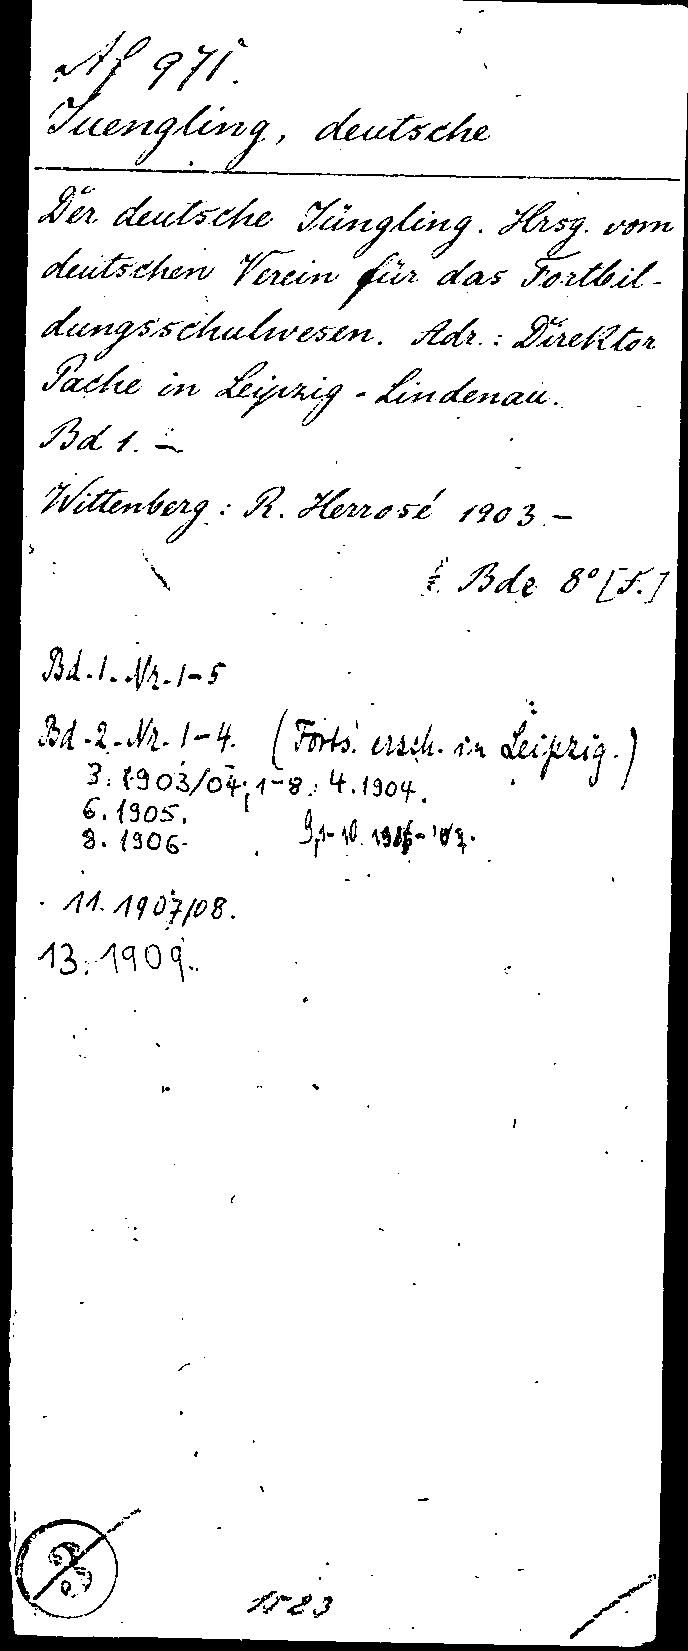 Af 975.
Juengling, deutsche
Der deutsche Jüngling. Hrsg. vom
deutschen Verein für das Fortbil-
dungsschulwesen. Adr.: Direktor
Pache in Leipzig-Lindenau.
Bd 1. –
Wittenberg: R. Herrosé 1903 –
Bde 8° [F.]
Bd. 1. Nr. 1–5
Bd. 2. Nr. 1–4. (Forts. ersch. in Leipzig.)
3. 1903/04; 1–8. 4. 1904.
6. 1905.
8. 1906.
11. 1907/08.
13. 1909.
1523